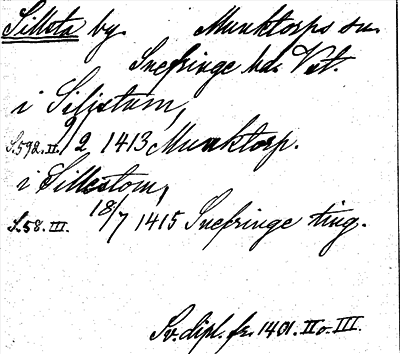 Sillsta by Munktorps sn.
Snefringe hd. Vst.
i Silistum,
S. 592. II. 9/2 1413 Munktorp.
i Sillestom,
S. 58. III. 18/7 1415 Snefringe ting.
Sv. dipl. fr. 1401. II o. III.